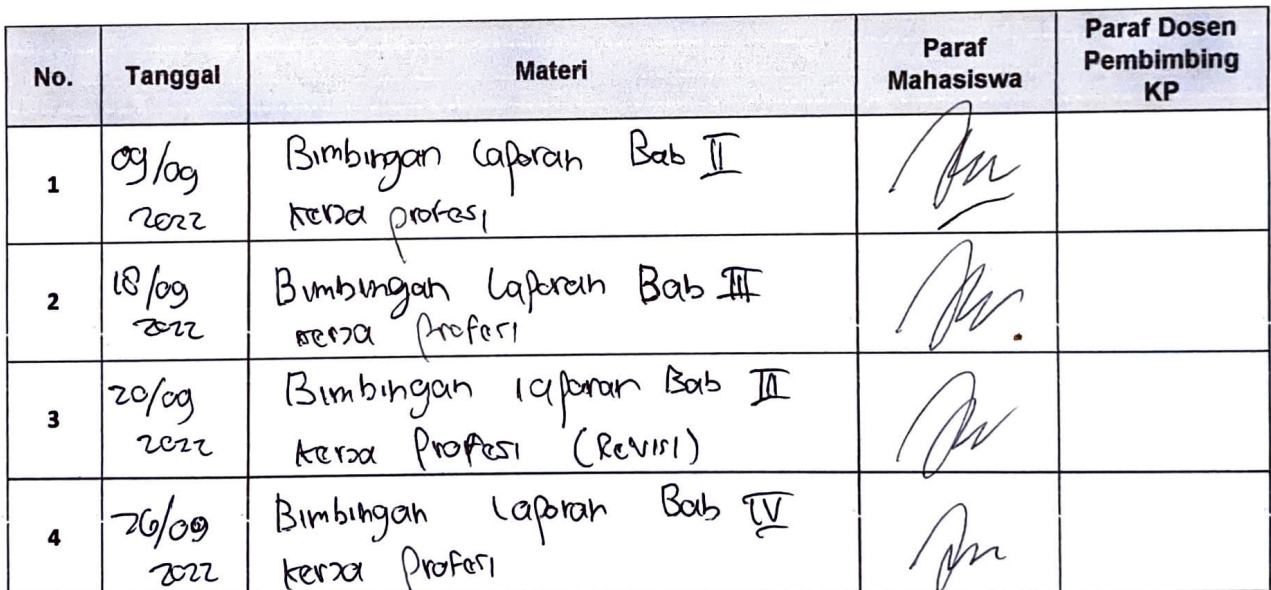 No. Tanggal Materi Paraf Mahasiswa Paraf Dosen Pembimbing KP
1 09/09 2022 Bimbingan laporan Bab II
kerja profesi
2 18/09 2022 Bimbingan laporan Bab III
kerja profesi
3 20/09 2022 Bimbingan laporan Bab III
kerja profesi (Revisi)
4 26/09 2022 Bimbingan laporan Bab IV
kerja profesi